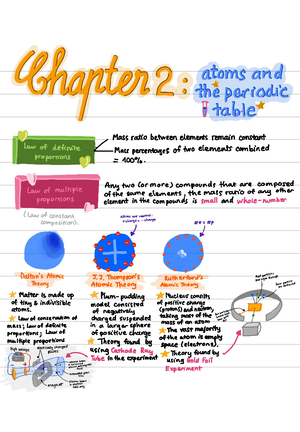 Chapter 2: atoms and
the periodic
table
Law of definite
proportions
Mass ratio between elements remain constant
Mass percentages of two elements combined
= 100%.
Law of multiple
proportions
(Law of constant
composition).
Any two (or more) compounds that are composed
of the same elements, the mass ratio of any other
element in the compounds is small and whole-number
Dalton's Atomic
Theory
Matter is made up
of tiny & indivisible
atoms.
Law of conservation of
mass; law of definite
proportions; law of
multiple proportions
J.J. Thompson's
Atomic Theory
Plum-pudding
model consisted
of negatively
charged suspended
in a larger sphere
of positive charge
Theory found by
using Cathode Ray
Tube in the experiment
Rutherford's
Atomic Theory
Nucleus consists
of positive charge
(protons) and neutron,
taking most of the
mass of an atom
The vast majority
of the atom is empty
space (electrons).
Theory found by
using Gold Foil
Experiment
High voltage
Electrically charged
plates
magnet